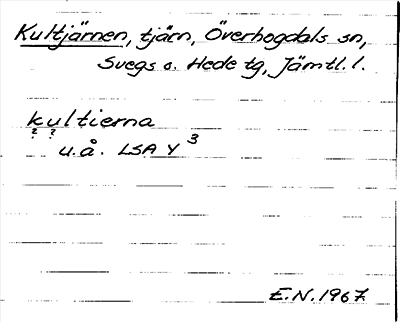 Kultjärnen, tjärn, Överhogdals sn,
Svegs o. Hede tg, Jämtl. l.
kultierna
? ?
u. å. LSA Y 3
E.N. 1967